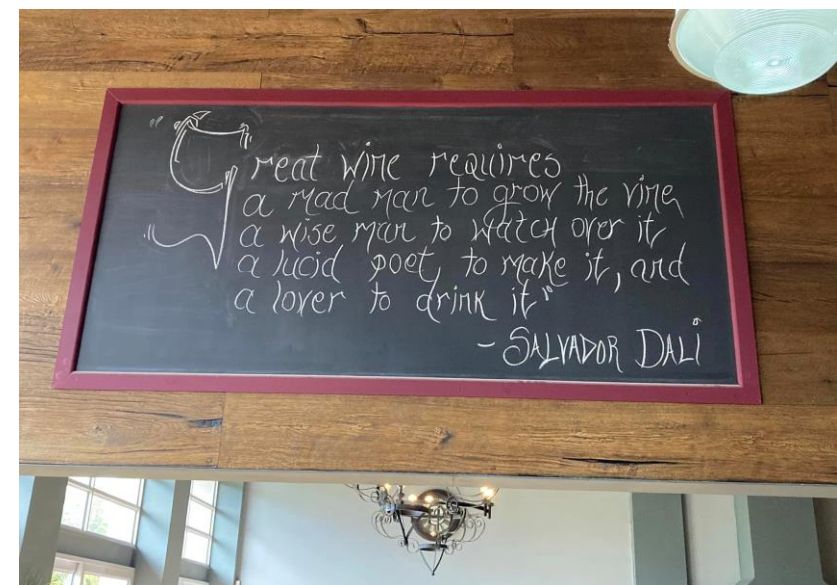 "Great wine requires
a mad man to grow the vine,
a wise man to watch over it,
a lucid poet, to make it, and
a lover to drink it"
- SALVADOR DALÍ